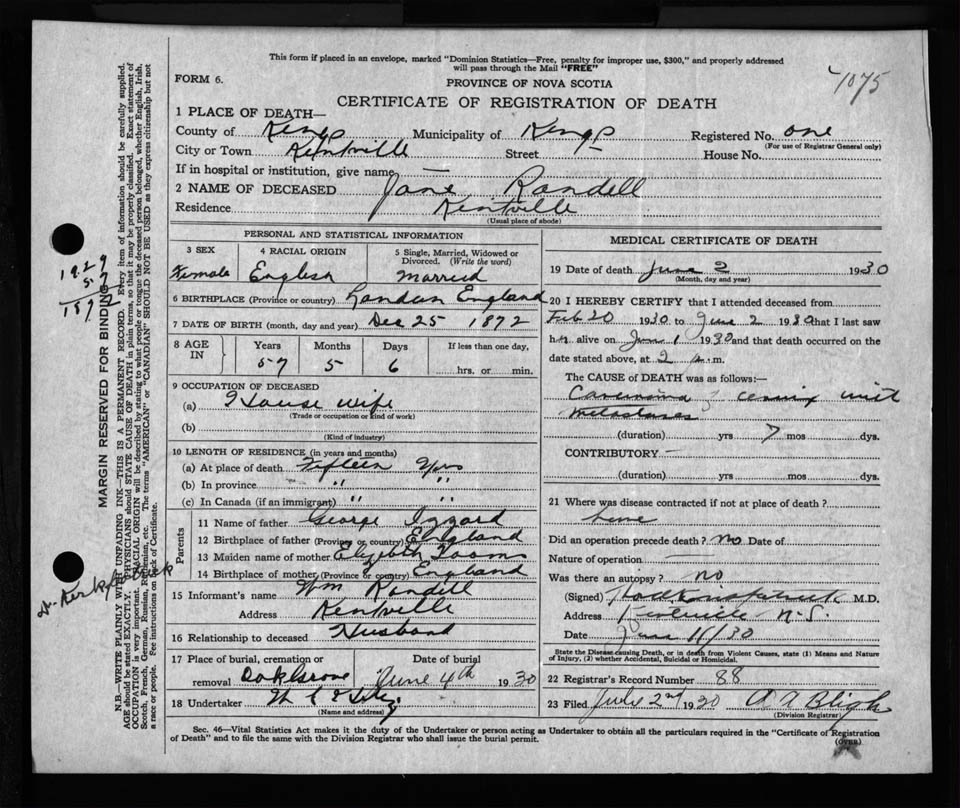 This form if placed in an envelope, marked "Dominion Statistics—Free, penalty for improper use, $300," and properly addressed
will pass through the Mail "FREE"
FORM 6.
PROVINCE OF NOVA SCOTIA
1075
CERTIFICATE OF REGISTRATION OF DEATH
1 PLACE OF DEATH—
County of Kings Municipality of Kings Registered No. one
(For use of Registrar General only)
City or Town Kentville Street — House No.
If in hospital or institution, give name —
2 NAME OF DECEASED Jane Randell
Residence Kentville
(Usual place of abode)
PERSONAL AND STATISTICAL INFORMATION
3 SEX 4 RACIAL ORIGIN 5 Single, Married, Widowed or Divorced. (Write the word)
Female English Married
6 BIRTHPLACE (Province or country) London England
7 DATE OF BIRTH (month, day and year) Dec 25 1872
8 AGE IN Years Months Days If less than one day,
57 5 6 hrs. or min.
9 OCCUPATION OF DECEASED
(a) House wife
(Trade or occupation or kind of work)
(b)
(Kind of industry)
10 LENGTH OF RESIDENCE (in years and months)
(a) At place of death Fifteen Yrs
(b) In province " "
(c) In Canada (if an immigrant) " "
Parents
11 Name of father George Izzard
12 Birthplace of father (Province or country) England
13 Maiden name of mother
14 Birthplace of mother (Province or country) England
15 Informant's name Wm Randell
Address Kentville
16 Relationship to deceased Husband
17 Place of burial, cremation or removal Oak Grove
Date of burial June 4th 1930
18 Undertaker
(Name and address)
MEDICAL CERTIFICATE OF DEATH
19 Date of death June 2 1930
(Month, day and year)
20 I HEREBY CERTIFY that I attended deceased from
Feb 20 1930 to June 2 1930 that I last saw
her alive on June 1 1930 and that death occurred on the
date stated above, at 2 .m.
The CAUSE OF DEATH was as follows:—
Carcinoma of cervix with
metastases
(duration) yrs 7 mos dys.
CONTRIBUTORY —
(duration) yrs. mos. dys.
21 Where was disease contracted if not at place of death?
Did an operation precede death? no Date of
Nature of operation
Was there an autopsy? no
(Signed) M.D.
Address Kentville N.S.
Date June 11/30
State the Disease causing Death, or in death from Violent Causes, state (1) Means and Nature of Injury, (2) whether Accidental, Suicidal or Homicidal.
22 Registrar's Record Number 88
23 Filed July 2nd 1930 A A Bligh
(Division Registrar)
Sec. 46—Vital Statistics Act makes it the duty of the Undertaker or person acting as Undertaker to obtain all the particulars required in the "Certificate of Registration
of Death" and to file the same with the Division Registrar who shall issue the burial permit.
(OVER)
MARGIN RESERVED FOR BINDING
N.B.—WRITE PLAINLY WITH UNFADING INK—THIS IS A PERMANENT RECORD. Every item of information should be carefully supplied.
AGE should be stated EXACTLY. PHYSICIANS should STATE CAUSE OF DEATH in plain terms, so that it may be properly classified. Exact statement of
OCCUPATION is very important. RACIAL ORIGIN will be described by stating to what people or tongue the deceased person belonged, whether English, Irish,
Scotch, French, German, Russian, Ruthenian, etc. The terms "AMERICAN" or "CANADIAN" SHOULD NOT BE USED as they express citizenship but not
a race or people. See instructions on back of Certificate.
1929
57
1872